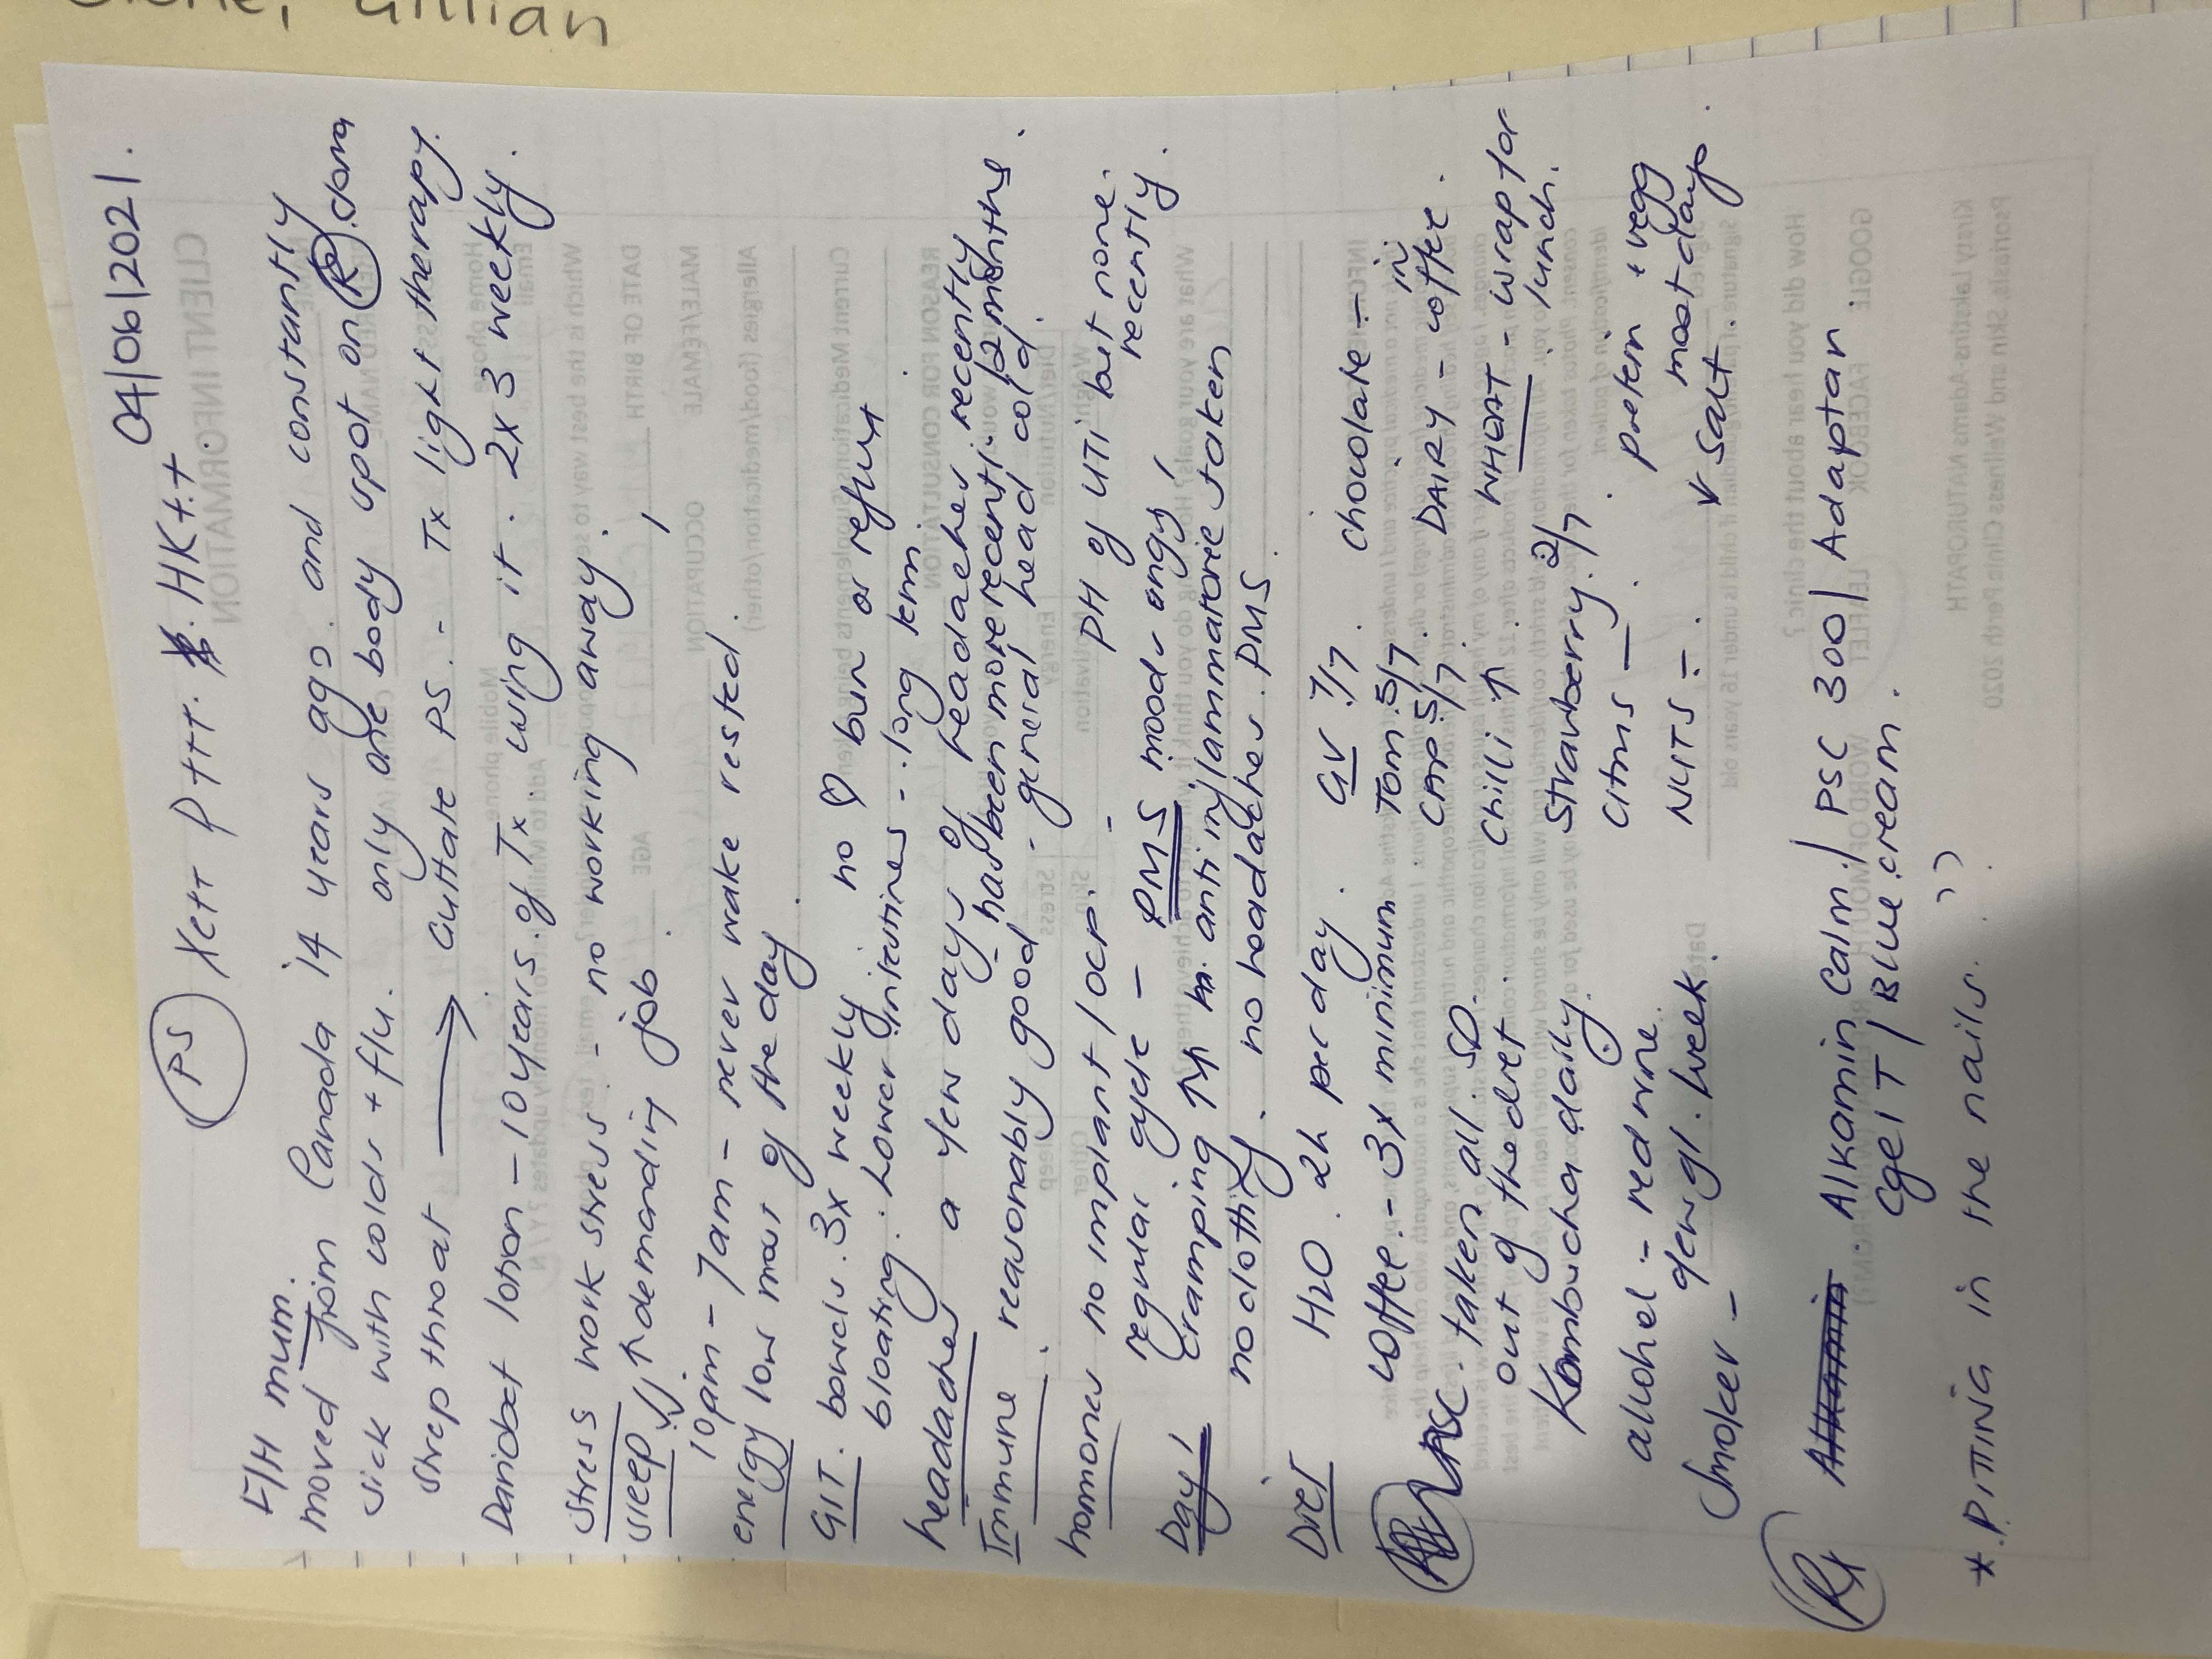 Gillian
04/06/2021.
PS X++ P+++. HK++
F/H mum.
moved from Canada 14 years ago. and constantly
sick with colds + flu. only one body spot on (R).
strep throat → Guttate PS. - Tx light therapy.
Daniobat lotion - 10 years. of Tx. using it. 2x 3 weekly.
Stress work stress - no working away.
sleep ↓↓ ↑ demanding job.
10pm - 7am - never wake rested.
energy low most of the day.
GIT. bowels. 3x weekly no ♡ burn or reflux.
bloating. lower intestines - long term
headaches a few days of headaches recently
- has been more recently. 12 months.
Immune. reasonably good - general head cold.
hormones no implant / OCP. - PH of UTI but none.
recently.
regular cycle - PMS mood - angry,
Day 1 cramping ↑ anti inflammatorie taken
no clotting. no headaches. PMS.
DIET H2O. 2L per day. GV 7/7. chocolate -
coffee. - 3x minimum. Tom. 5/7. DAIRY - in coffee.
taken all. SD. CAP 5/7. WHEAT - wrap for
out of the diet. chilli ↑. lunch.
Kombucha daily. Strawberry. 2/7.
alcohol - red wine. citrus - . protein + vegg
few gl. week. NUTS - . most days.
Smoker - ↓ salt.
Rx Alkamin Calm. / PSC 300 / Adaptan.
Cgel T / Blue cream.
* PITTING in the nails.